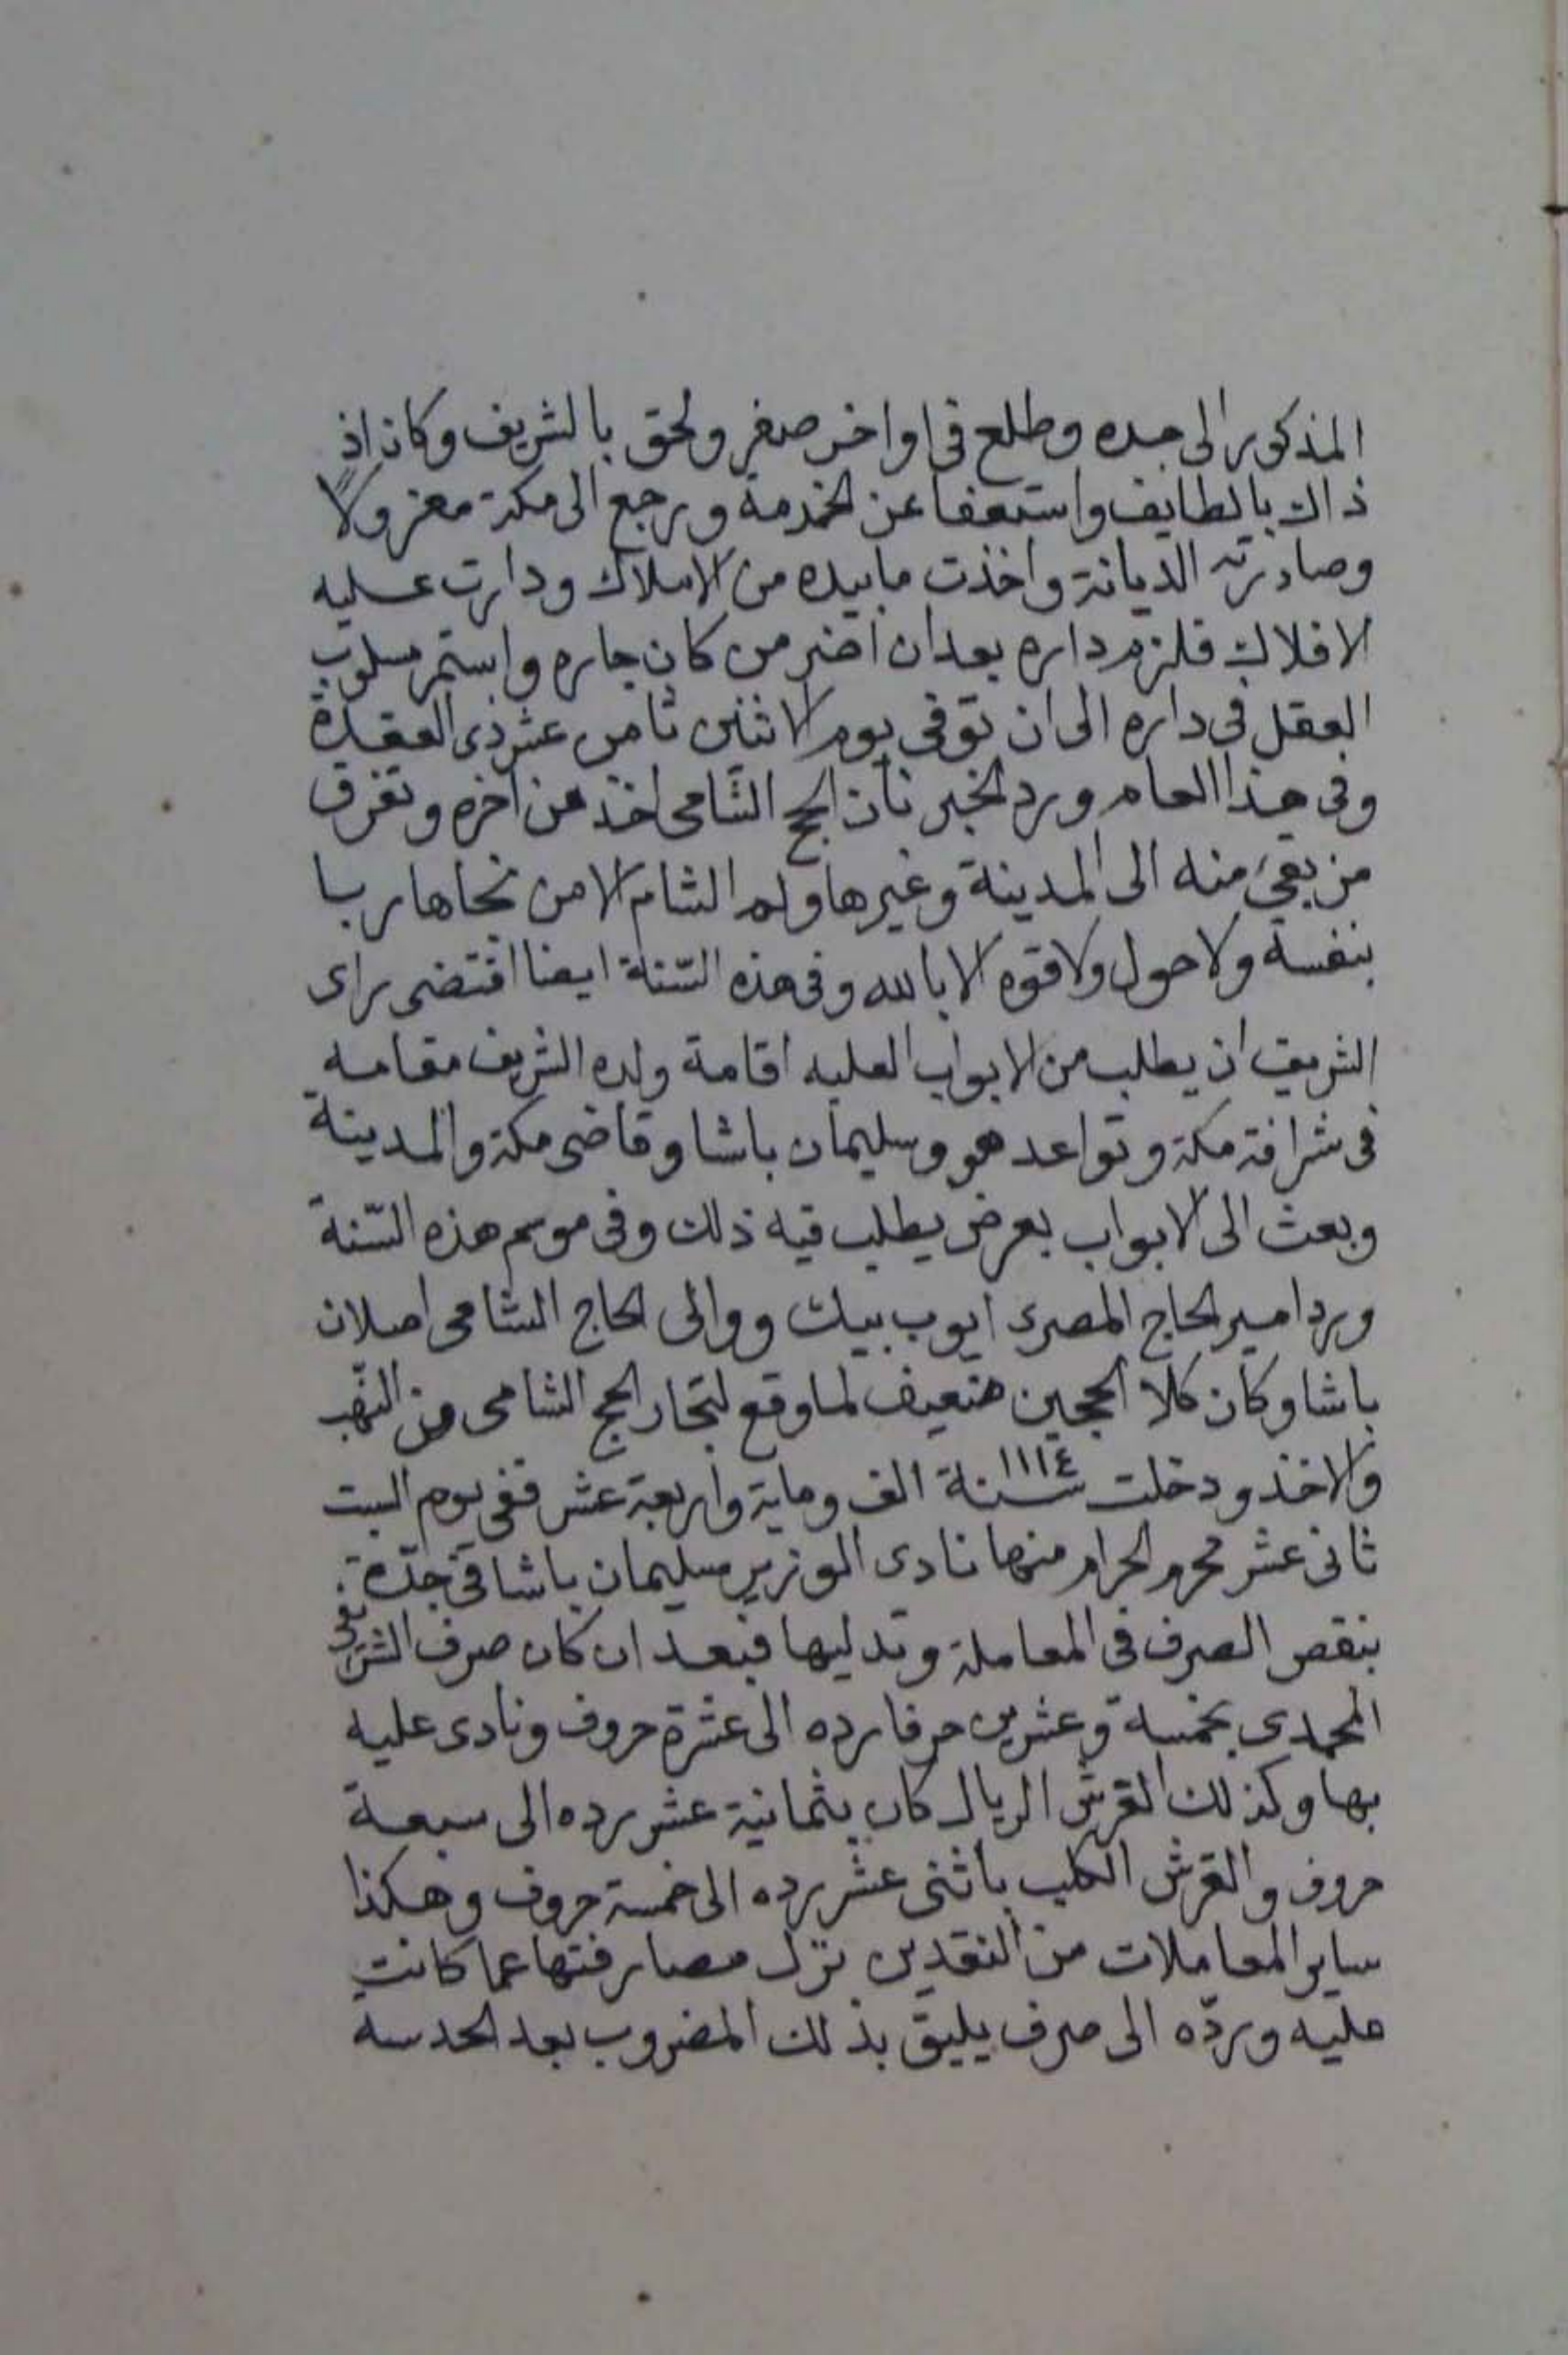 المذكور الى جده وطلع فى اواخر صفر ولحق بالشريف وكان اذ
ذاك بالطايف واستعفا عن الخدمة ورجع الى مكة معزولًا
وصادرته الديانة واخذت ما بيده من الاملاك ودارت عليه
الافلاك فلزم داره بعد ان اضر من كان جاره واستمر مسلوب
العقل فى داره الى ان توفى يوم الاثنين ثامن عشر ذى القعدة
وفى هذا العام ورد الخبر بان الحج الشامى اخذ عن اخره وتفرق
من بقى منه الى المدينة وغيرها ولم الشام الا من نجا هاربا
بنفسه ولا حول ولا قوه الا بالله وفى هذه السّنة ايضا اقتضى راى
الشريف ان يطلب من الابواب العليه اقامة ولده الشريف مقامه
فى شرافة مكة وتواعد هو وسليمان باشا وقاضى مكة والمدينة
وبعث الى الابواب بعرض يطلب فيه ذلك وفى موسم هذه السّنة
ورد امير الحاج المصرى ايوب بيك ووالى الحاج الشامى اصلان
باشا وكان كلا الحجين ضعيف لما وقع لتجار الحج الشامى من النهب
والاخذ ودخلت سنة ١١١٤ الف وماية واربعة عشر ففى يوم السبت
ثانى عشر محرم الحرام منها نادى الوزير سليمان باشا فى جدّة
بنقص الصرف فى المعاملة وتدليها فبعد ان كان صرف الشريفى
المحمدى بخمسة وعشرين حرفا رده الى عشرة حروف ونادى عليه
بها وكذلك القرش الريال كان بثمانية عشر رده الى سبعة
حروف والقرش الكلب باثنى عشر رده الى خمسة حروف وهكذا
ساير المعاملات من النقدين نزل مصارفتها عما كانت
عليه وردّه الى صرف يليق بذلك المضروب بعد